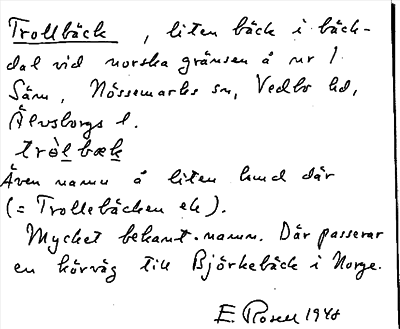 Trollbäck, liten bäck i bäck-
dal vid norska gränsen å nr 1
Säm, Nössemarks sn, Vedbo hd,
Älvsborgs l.
tròlbæk
Även namn å liten lund där
(= Trollebäcken ek).
Mycket bekant namn. Där passerar
en körväg till Björkebäck i Norge.
E Rosell 1940